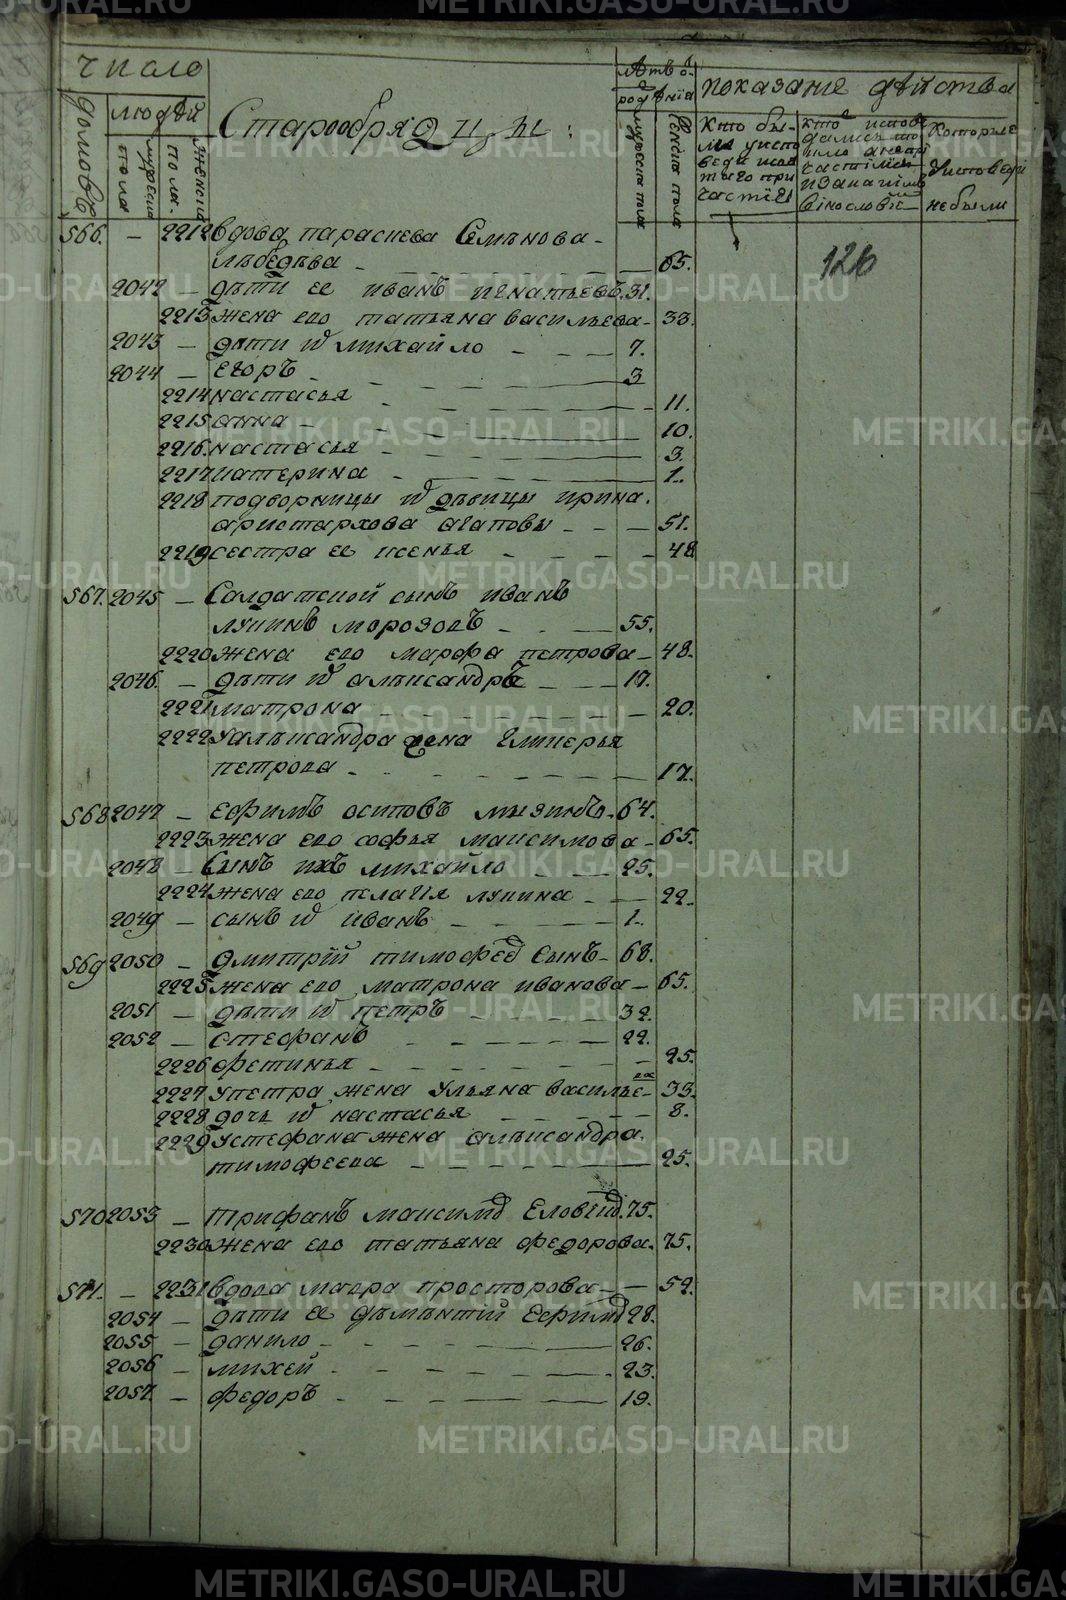 число
домовъ
людей
мужеска пола
женска пола
Старообрядцы:
лѣтъ о
рожденїя
мужеска пола
женска пола
показание дѣйства
кто бы-
ли у испо
веди и свя
таго при
частїя
кто испове
дались то
кмо а непри
частились
и за каким
винословїе
которые
у исповеди
не были
126
566. — 2212 вдова параскева Семѣнова
лѣбѣдѣва — 65.
2042 — дѣти ее иванъ игнатьевъ 31.
2213 жена его татьяна васильева — 33.
2043 — дѣти и михайло — 7.
2044 — егоръ — 3
2214 настасья — 11.
2215 анна — 10.
2216 настасья — 3.
2217 катерина — 1.
2218 подворницы и дѣвицы ирина
аристархова агаповы — 51.
2219 сестра ее ксенья — 48
567. 2045 — Салдатской сынъ иванъ
лукинъ морозовъ — 55.
2220 жена его марфа петрова — 48.
2046. — дѣти и алѣксандръ — 17.
2221 матрона — 20.
2222 у алѣксандра жена гликерья
петрова — 17.
568 2047 — ефимъ осиповъ мызинъ — 64.
2223 жена его софья максимова — 65.
2048 — Сынъ ихъ михайло — 25.
2224 жена его пелагїя лукина — 22.
2049 — сынъ и иванъ — 1.
569 2050 — дмитрїй тимофеев Сынъ — 68.
2225 жена его матрона иванова — 65.
2051 — дѣти и петръ — 32.
2052 — стефанъ — 22.
2226 фетинья — 25.
2227 у петра жена ульяна василье ва — 33.
2228 дочь и настасья — 8.
2229 у стефана жена алѣксандра
тимофеева — 25.
570 2053 — трифанъ максимов Еловских 75.
2230 жена его татьяна федорова. 75.
571. — 2231 вдова мавра просторова — 52.
2054 — дѣти ее дѣмѣнтїй ефимов 28.
2055 — данило — 26.
2056 — михей — 23.
2057. — федоръ — 19.
METRIKI.GASO-URAL.RU